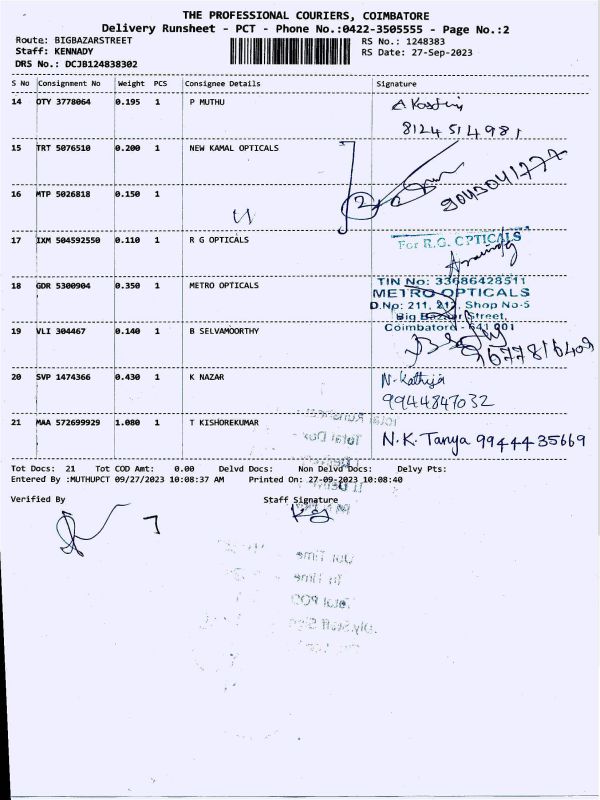 THE PROFESSIONAL COURIERS, COIMBATORE
Delivery Runsheet - PCT - Phone No.:0422-3505555 - Page No.:2
Route: BIGBAZARSTREET RS No.: 1248383
Staff: KENNADY RS Date: 27-Sep-2023
DRS No.: DCJB124838302
S No Consignment No Weight PCS Consignee Details Signature
14 OTY 3778064 0.195 1 P MUTHU
8124514981
15 TRT 5076510 0.200 1 NEW KAMAL OPTICALS
9045041777
16 MTP 5026818 0.150 1 "
17 IXM 504592550 0.110 1 R G OPTICALS For R.G. OPTICALS
18 GDR 5300904 0.350 1 METRO OPTICALS TIN No: 33686428511
METRO OPTICALS
D.No: 211, 212, Shop No-5
Big Bazaar Street,
Coimbatore - 641 001
19 VLI 304467 0.140 1 B SELVAMOORTHY
9677816409
20 SVP 1474366 0.430 1 K NAZAR N. Kathija
9944847032
21 MAA 572699929 1.080 1 T KISHOREKUMAR N.K. Tanya 9944435669
Tot Docs: 21 Tot COD Amt: 0.00 Delvd Docs: Non Delvd Docs: Delvy Pts:
Entered By :MUTHUPCT 09/27/2023 10:08:37 AM Printed On: 27-09-2023 10:08:40
Verified By Staff Signature